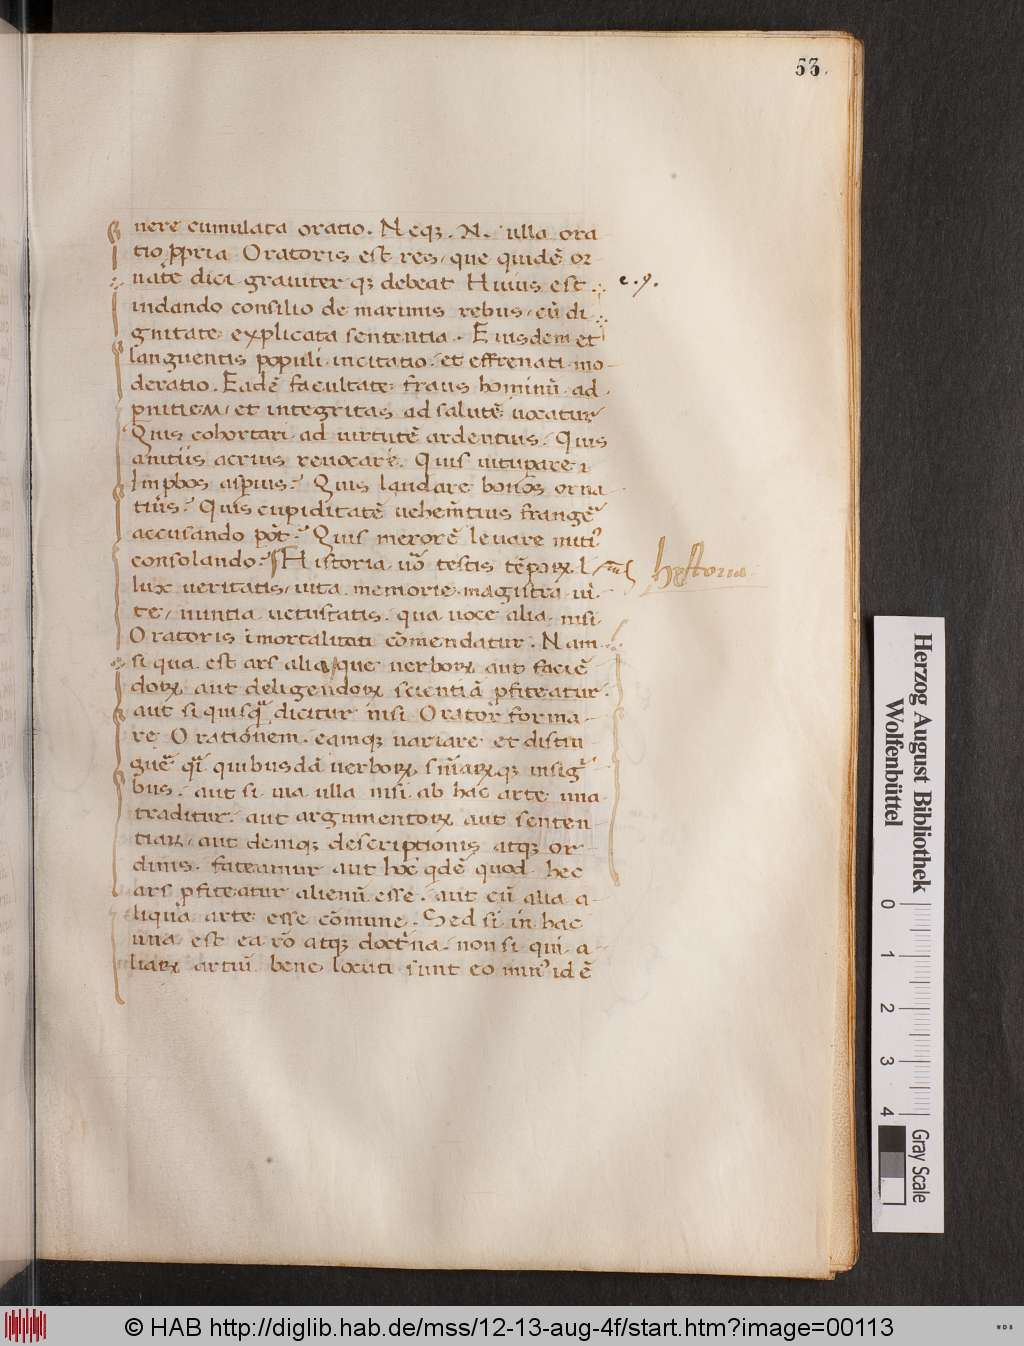 53.
nere cumulata oratio. Neqꝫ. N. ulla ora
tio ꝓpria Oratoris est res, que quidē or
nate dici grauiter qꝫ debeat Huius est
e. 9.
indando consilio de maximis rebus, cū di
gnitate explicata sententia. Eiusdem et
languentis populi incitatio. et effrenati mo-
deratio. Eadē facultate fraus hominū ad
pnitiem, et integritas ad salutē uocatur
Quis cohortari ad uirtutē ardentius. Quis
auitiis acrius reuocare. Quis uitupare i
Improbos asperius? Quis laudare bonos orna
tius? Quis cupiditatē uehem̄tius frangē
accusando pōt? Quis merorē leuare miti
consolando? Historia uō testis tēpoꝝ.
hystoria
lux ueritatis, uita memorie, magistra ui
te, nuntia uetustatis. qua uoce alia nisi
Oratoris īmortalitati cōmendatur. Nam
si qua est ars alia, que uerboꝝ aut faciē
doꝝ aut deligendoꝝ scientiā ꝓfiteatur.
aut si quisqᷓ dicitur nisi Orator forma-
re Orationem. eamqꝫ uariare et distin
guē qi quibusdā uerboꝝ, sniaꝝqꝫ insig
bus. aut si uia ulla nisi ab hac arte una
traditur. aut argumentoꝝ aut senten
tiaꝝ, aut deniqꝫ descriptionis atqꝫ or
dinis. fateamur aut hoc qdē quod hec
ars ꝓfiteatur alienū esse. aut cū alia a-
liqua arte esse cōmune. Sed si in hac
una est ea rō atqꝫ doctrina. non si qui a-
liaꝝ artiū bene locuti sunt eo min' idē
Herzog August Bibliothek
Wolfenbüttel
0 1 2 3 4
Gray Scale
© HAB http://diglib.hab.de/mss/12-13-aug-4f/start.htm?image=00113